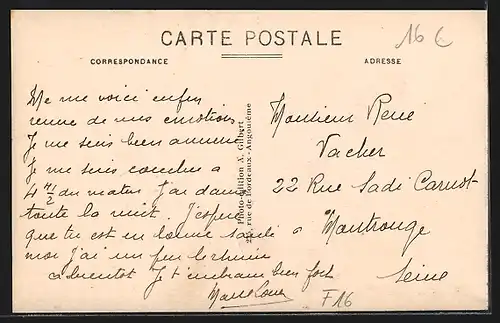 CARTE POSTALE
16 €
CORRESPONDANCE
ADRESSE
Me me voici enfin
venue de mes emotions
Je me suis bien amusee
Je me suis couchee a
4 h/2 du matin J'ai danse
toute la nuit. J'espere
que tu est en bonne santé
moi j'ai un peu le rhume
a bientot Je t'embrasse bien fort
Photo-Edition X. Gilbert
rue de Bordeaux-Angoulême
Monsieur René
Vacher
22 Rue Sadi Carnot
a Montrouge
Seine
F16